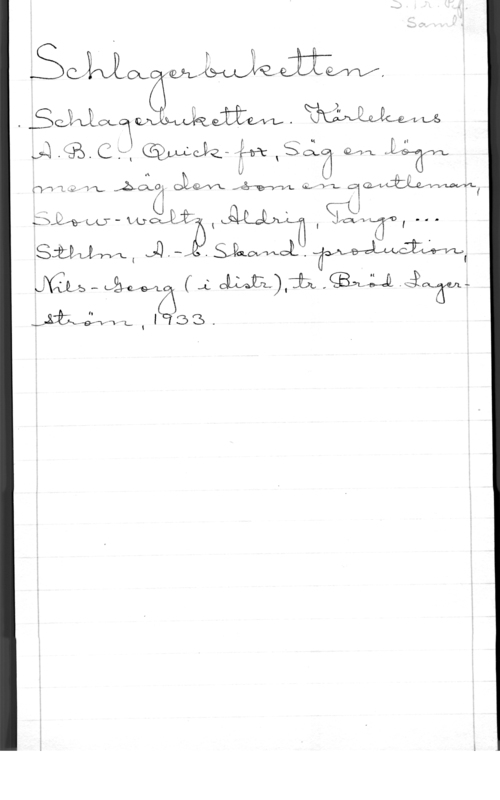 Saml.
Schlagerbuketten.
Schlagerbuketten. Kärlekens
A.B.C., Quick-fox, Säg en lögn
men säg den som en gentleman,
Slow-waltz, Aldrig, Tango, ...
Sthlm, A.-B. Skand. production,
Nils-Georg (i distr.), tr. Bröd. Lager-
ström, 1933.